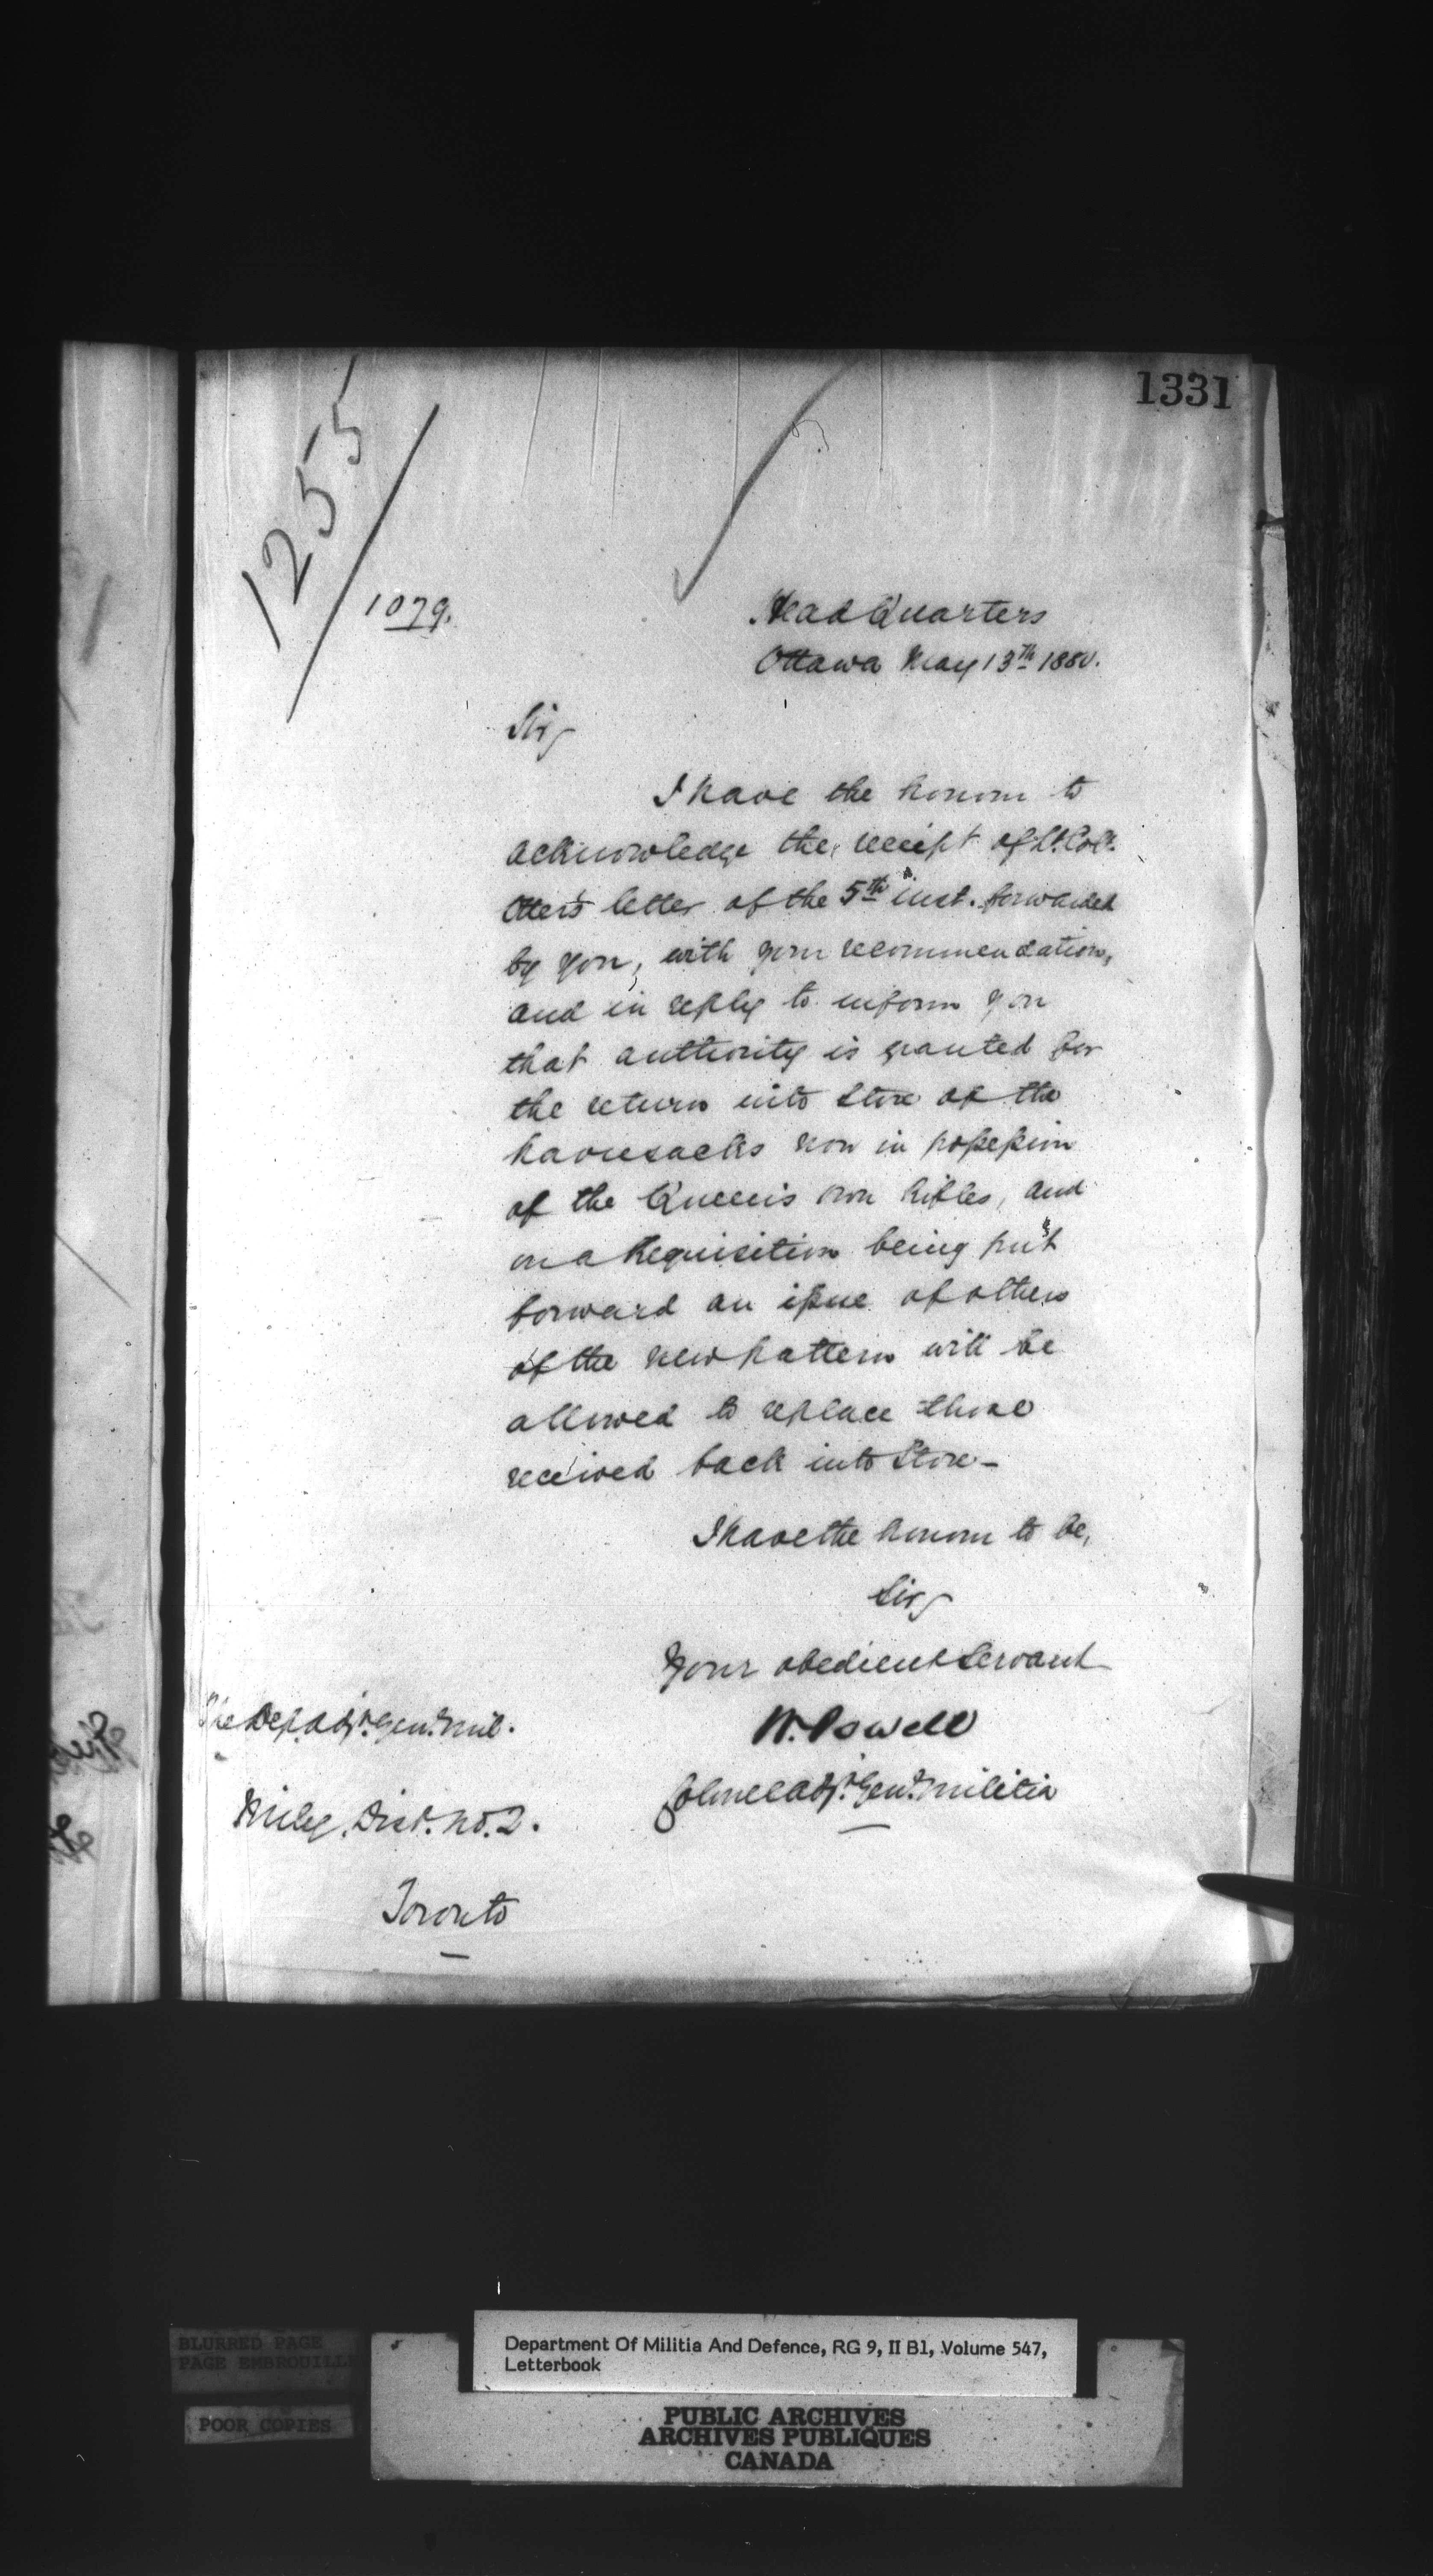 1331
1255
1079.
Head Quarters
Ottawa May 13th 1880.
Sir,
I have the honour to
acknowledge the receipt of Lt. Col.
Otter's letter of the 5th inst. forwarded
by you, with your recommendation,
and in reply to inform you
that authority is granted for
the return into Store of the
haversacks now in possession
of the Queen's Own Rifles, and
on a Requisition being put
forward an issue of others
of the new pattern will be
allowed to replace those
received back into Store—
I have the honour to be,
Sir,
Your obedient Servant
W. Powell
Colonel Adjt. Genl. Militia
The Dep. Adjt. Genl. Mil.
Mily. Dist. No. 2.
Toronto
BLURRED PAGE
PAGE EMBROUILLE
POOR COPIES
Department Of Militia And Defence, RG 9, II B1, Volume 547,
Letterbook
PUBLIC ARCHIVES
ARCHIVES PUBLIQUES
CANADA